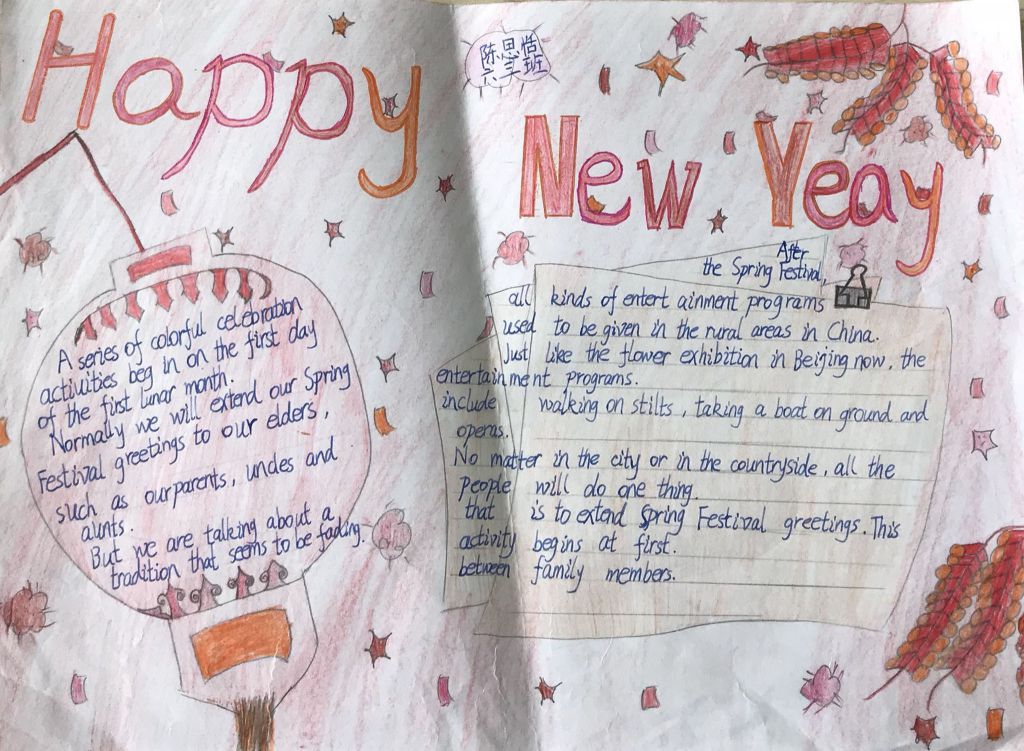 Happy
陈思恬
六三班
New Yeay
A series of colorful celebration
activities beg in on the first day
of the first lunar month.
Normally we will extend our Spring
Festival greetings to our elders,
such as our parents, uncles and
aunts.
But we are talking about a
tradition that seems to be fading.
After
the Spring Festival,
all kinds of entert ainment programs
used to be given in the rural areas in China.
Just like the flower exhibition in Beijing now, the
entertainment programs.
include walking on stilts, taking a boat on ground and
operas.
No matter in the city or in the countryside, all the
people will do one thing.
that is to extend Spring Festival greetings. This
activity begins at first.
between family members.